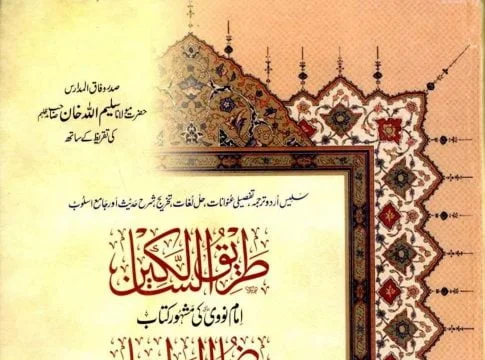 صدر وفاق المدارس
حضرت مولانا سلیم اللہ خان صاحب
کی تقریظ کے ساتھ
سلیس اردو ترجمہ، تفصیلی عنوانات، حل لغات، تخریج، شرح حدیث اور جامع اسلوب
طریق السالکین
امام نووی کی مشہور کتاب